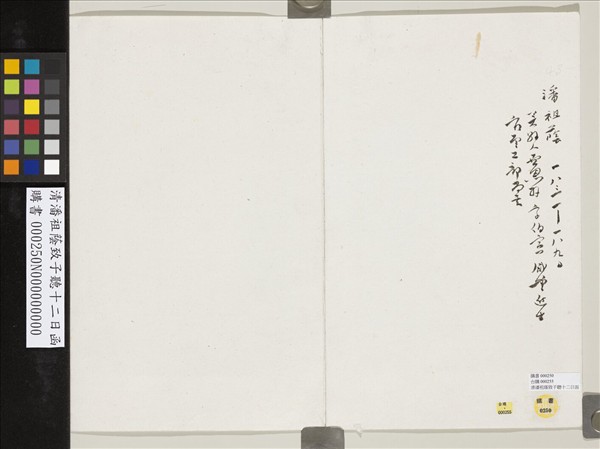 潘祖蔭 一八三〇―一八九〇
吳縣人 字伯寅 咸豐進士
官至工部尚書
清潘祖蔭致子聽十二日函
購書 000250N000000000
購書 000250
台購 000255
清潘祖蔭致子聽十二日函
購書
0250